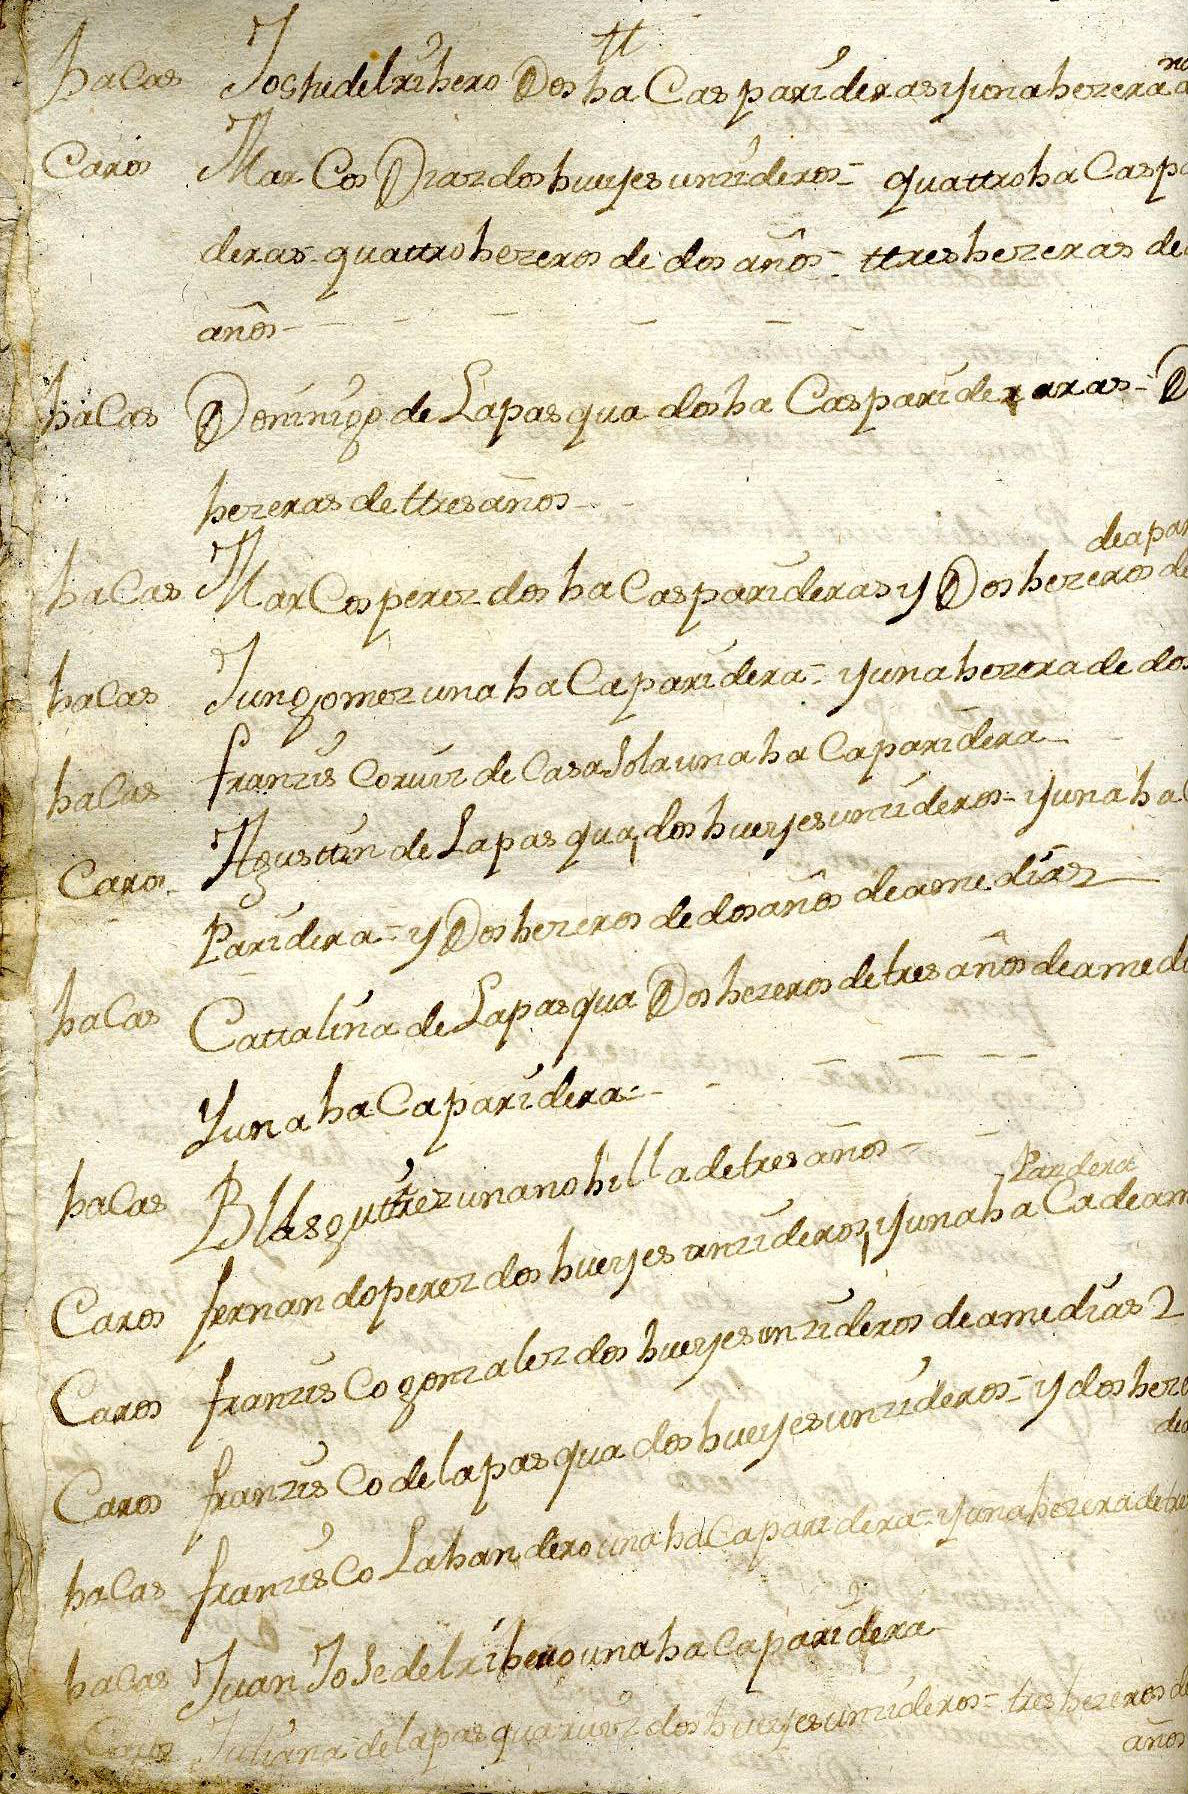 tt
haCas Joshe del rihero Dos ha Cas parideras y una hezera
Caros Mar Cos Diaz dos hueyes unzideros = quattro ha Cas pa
deras quattro hezeros de dos años = ttres hezeras de
años
haCas Dominigo de La pasqua dos ha Cas parideraras = D
hezeras de ttres años
de apar
haCas Mar Cos perez dos ha Cas parideras y Dos hezeros de
haCas Jun gomez una ha Ca paridera = y una hezera de dos
haCas franzis Co ruiz de Casa Sola una ha Ca paridera
Caros Agusttin de La pasqua, dos hueyes unzideros = y una ha C
Paridera = y Dos hezeros de dos años de a medias
haCas Cattalina de La pasqua Dos hezeros de tres años de a medi
Y una ha Ca paridera =
haCas Blas guttrez una nohilla de tres años
Paridera
Caros fernando perez dos hueyes unzideros, y una ha Ca de am
Caros franzis Co gonzalez dos hueyes unzideros de a medias
Caros franzis Co de la pasqua dos hueyes unzideros = y dos heze
de
haCas franzis Co Lahandero una ha Ca paridera = y una hezera de
haCas Juan JoSe del rihero una ha Ca paridera
Caros Juliana de la pasqua ruiz dos hueyes unzideros = tres hezeros de
años